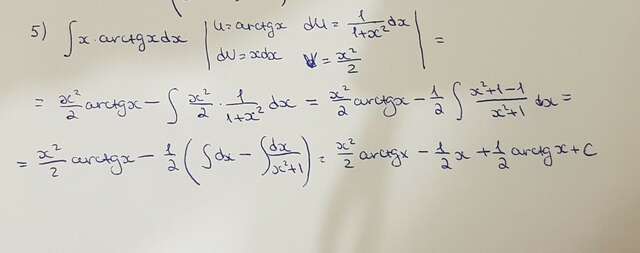 5) ∫ x · arctgx dx | u = arctgx du = 1/(1+x²) dx dv = xdx v = x²/2 | =
= x²/2 arctgx − ∫ x²/2 · 1/(1+x²) dx = x²/2 arctgx − 1/2 ∫ (x²+1−1)/(x²+1) dx =
= x²/2 arctgx − 1/2 ( ∫ dx − ∫ dx/(x²+1) ) = x²/2 arctgx − 1/2 x + 1/2 arctgx + C